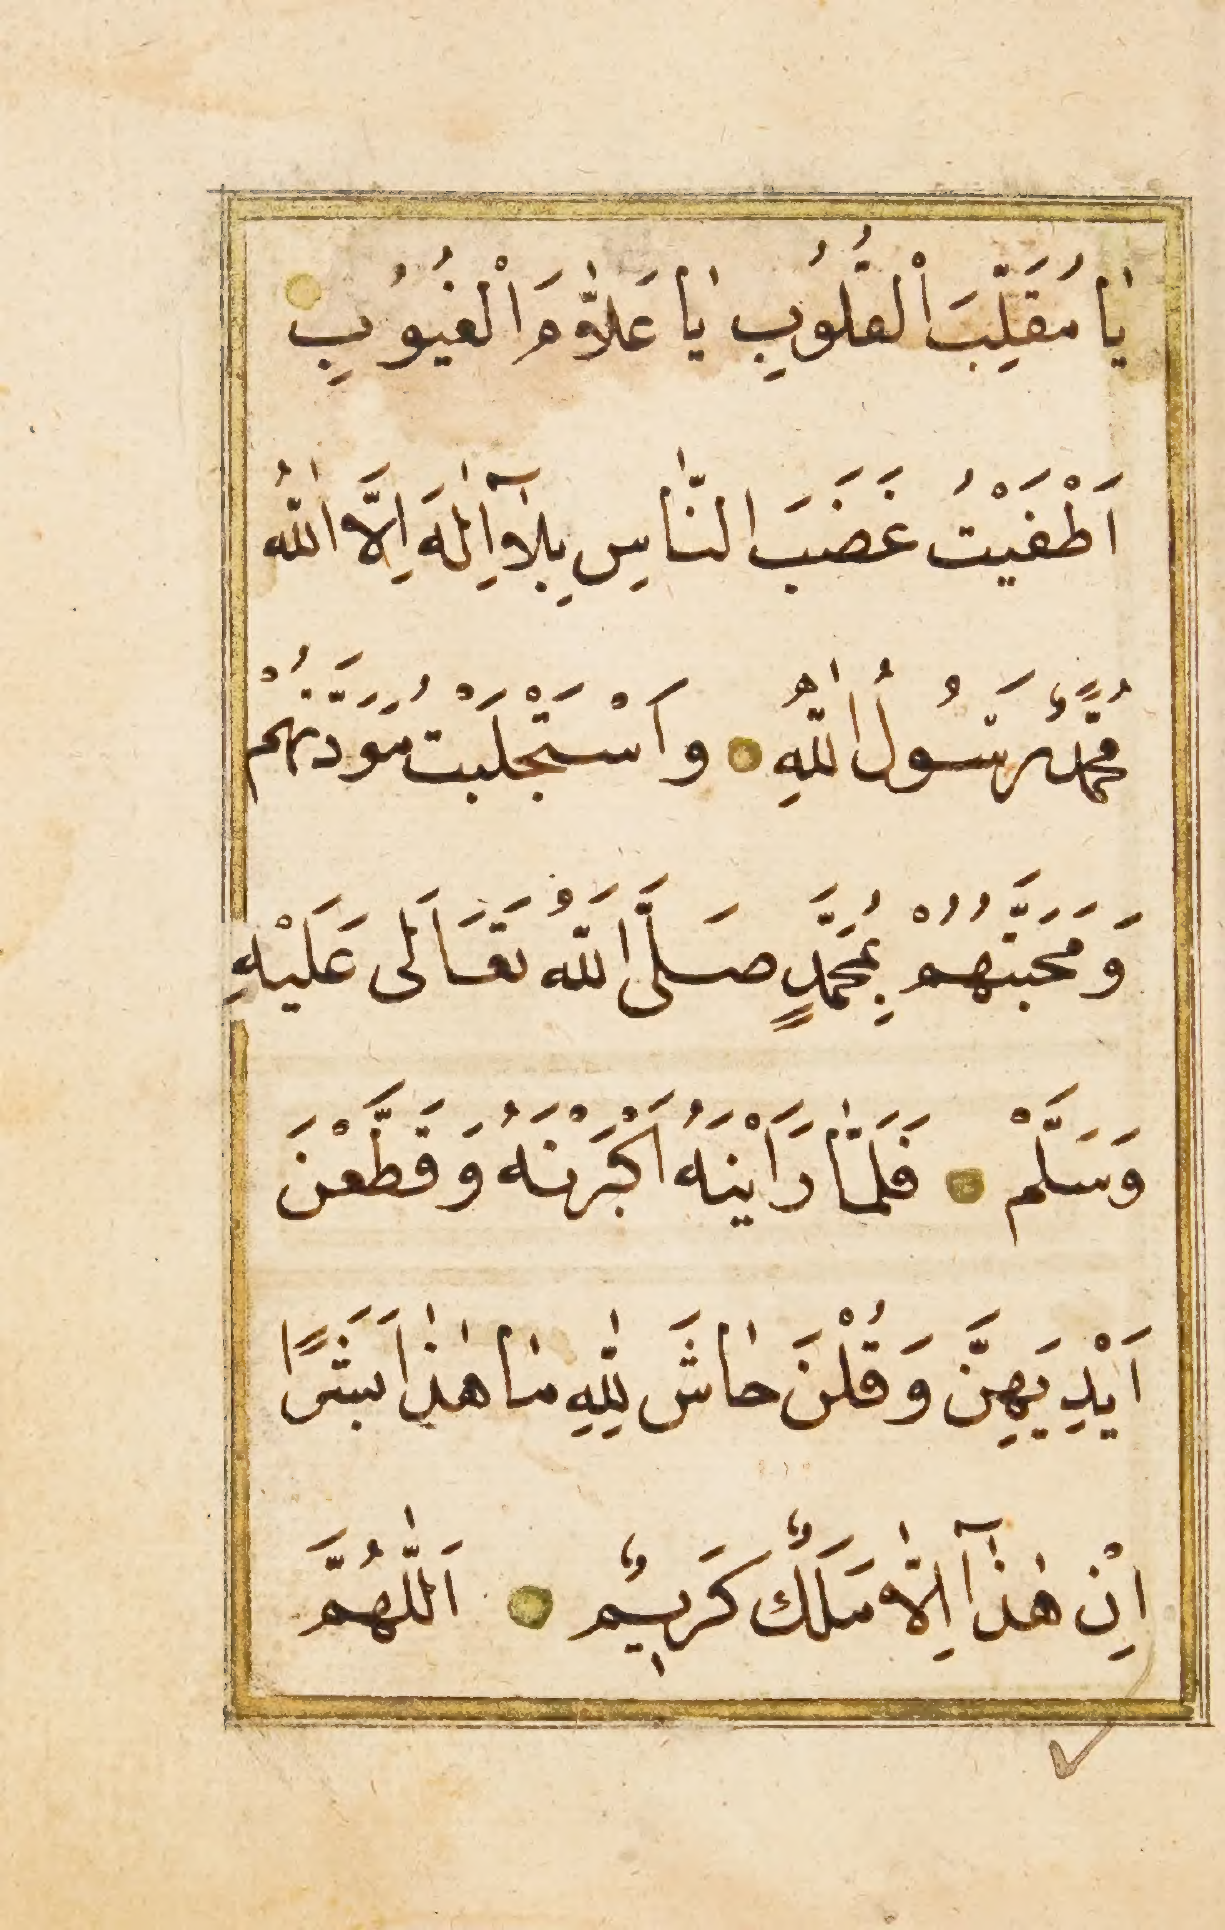 يَا مُقَلِّبَ الْقُلُوبِ يَا عَلَّامَ الْغُيُوبِ
اَطْفَيْتُ غَضَبَ النَّاسِ بِلَآ اِلٰهَ اِلَّا اللّٰهُ
مُحَمَّدٌ رَسُولُ اللّٰهِ وَاَسْتَجْلَبْتُ مَوَدَّتَهُمْ
وَ مَحَبَّتَهُمْ بِمُحَمَّدٍ صَلَّى اللّٰهُ تَعَالٰى عَلَيْهِ
وَسَلَّمْ فَلَمَّا رَاَيْنَهُ اَكْبَرْنَهُ وَ قَطَّعْنَ
اَيْدِيَهِنَّ وَ قُلْنَ حَاشَ لِلّٰهِ مَا هٰذَا بَشَرًا
اِنْ هٰذَآ اِلَّا مَلَكٌ كَرِيمٌ اَللّٰهُمَّ